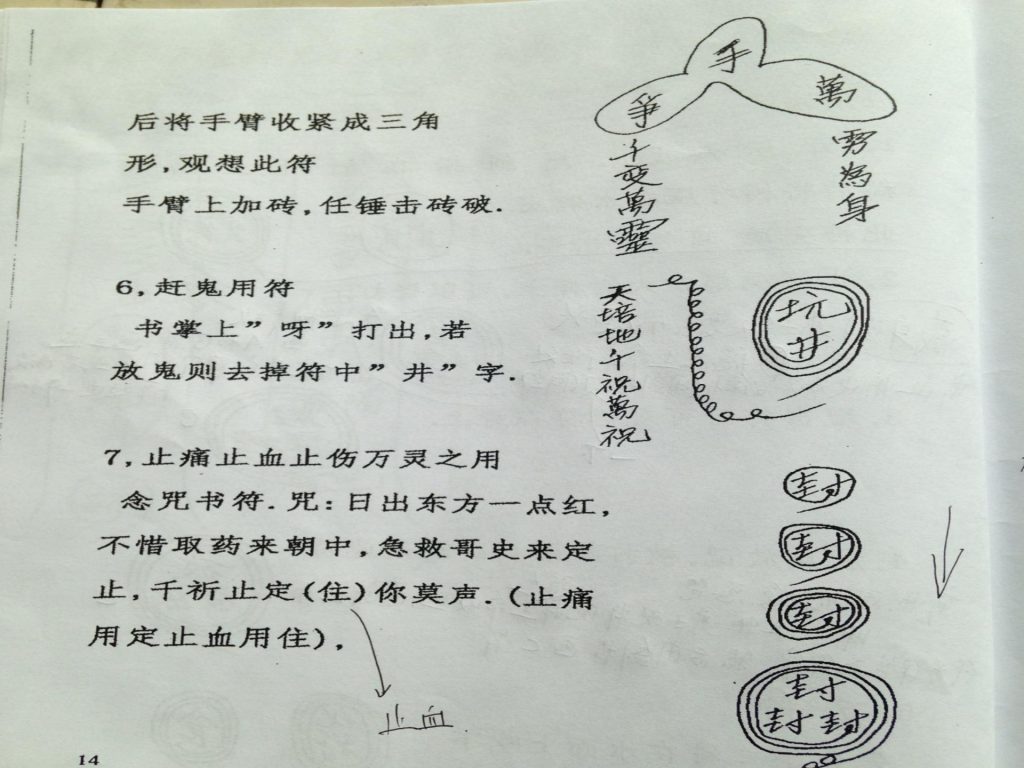 后将手臂收紧成三角
形,观想此符
手臂上加砖,任锤击砖破.
手
萬
千变萬靈
為身
6,赶鬼用符
书掌上”呀”打出,若
放鬼则去掉符中”井”字.
天培地千祝萬祝
坑
井
7,止痛止血止伤万灵之用
念咒书符.咒:日出东方一点红,
不惜取药来朝中,急救哥史来定
止,千祈止定(住)你莫声.(止痛
用定止血用住),
止血
封
封
封
封
封封
14